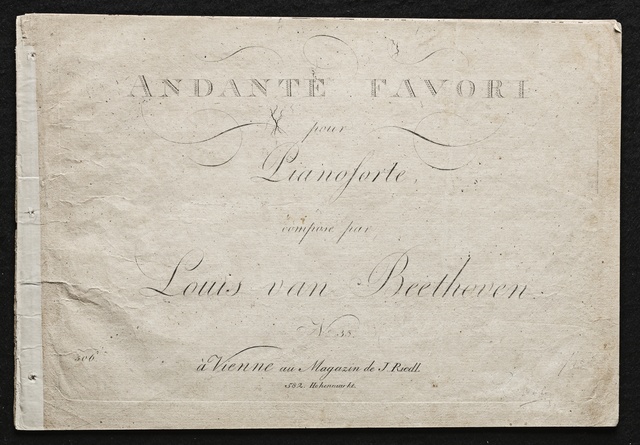 ANDANTE FAVORI
pour
Pianoforte,
composé par
Louis van Beethoven
No 35.
306
à Vienne au Magazin de J. Riedl.
582. Hohenmarkt.